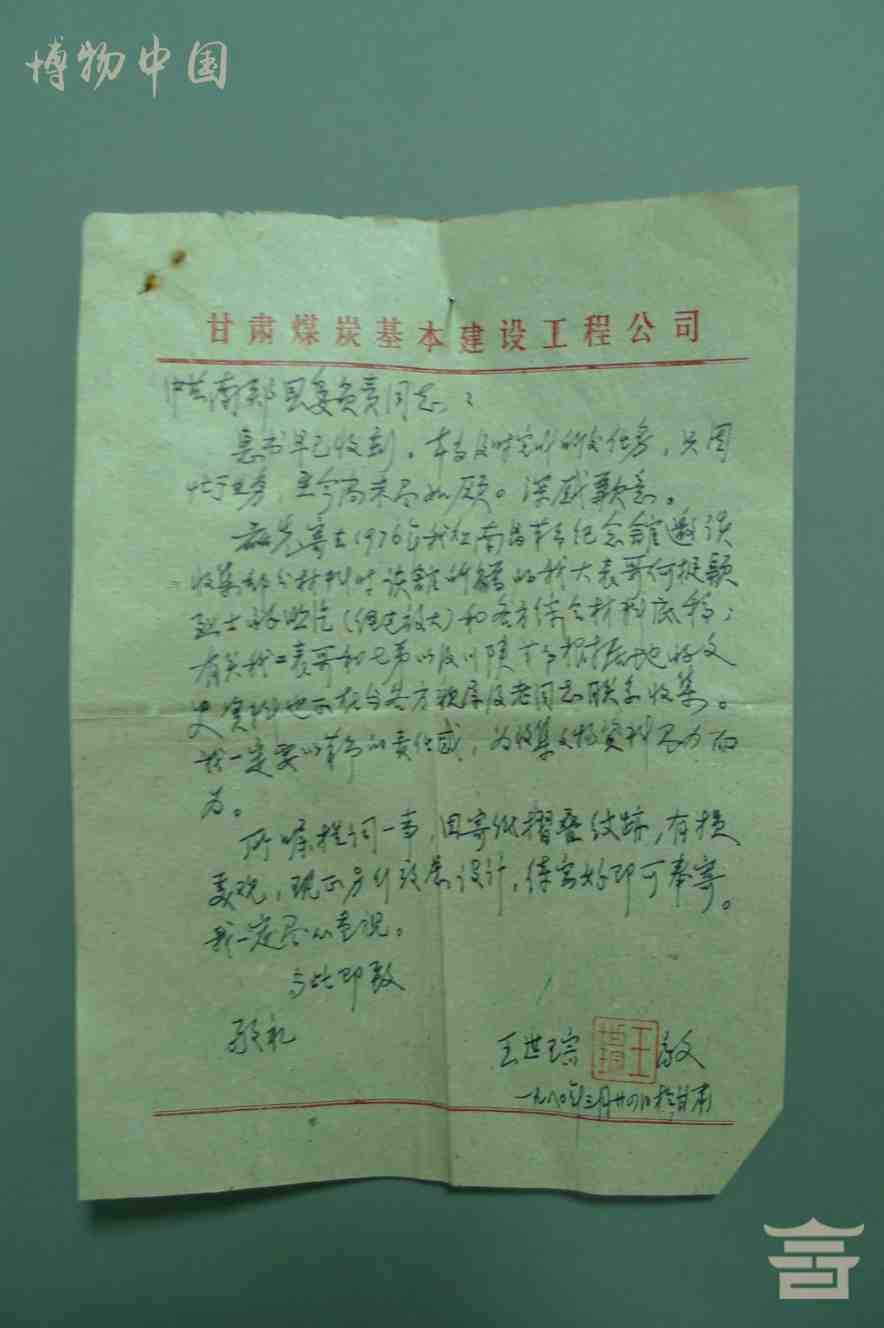 博物中国
甘肃煤炭基本建设工程公司
中共南郑县委负责同志：
惠书早已收到。本当及时完成所交任务，只因
忙于业务，至今尚未尽如愿。深感歉意。
兹先寄去1976年我在南昌革命纪念馆邀谈
收集部分材料时该馆所赠的我大表哥何挺颖
烈士的照片(经过放大)和各方综合材料底稿；
有关我二表哥和七弟以及川陕革命根据地的文
史资料也正在与各方秩序及老同志联系收集。
我一定要以革命的责任感，为收集文物资料尽力而
为。
所嘱挽词一事，因寄纸摺叠纹跡，有损
美观，现正另行设计，待写好即可奉寄。
我一定尽心重视。
专此即致
敬礼
王世琮 敬文
一九八〇年三月廿四日于甘肃